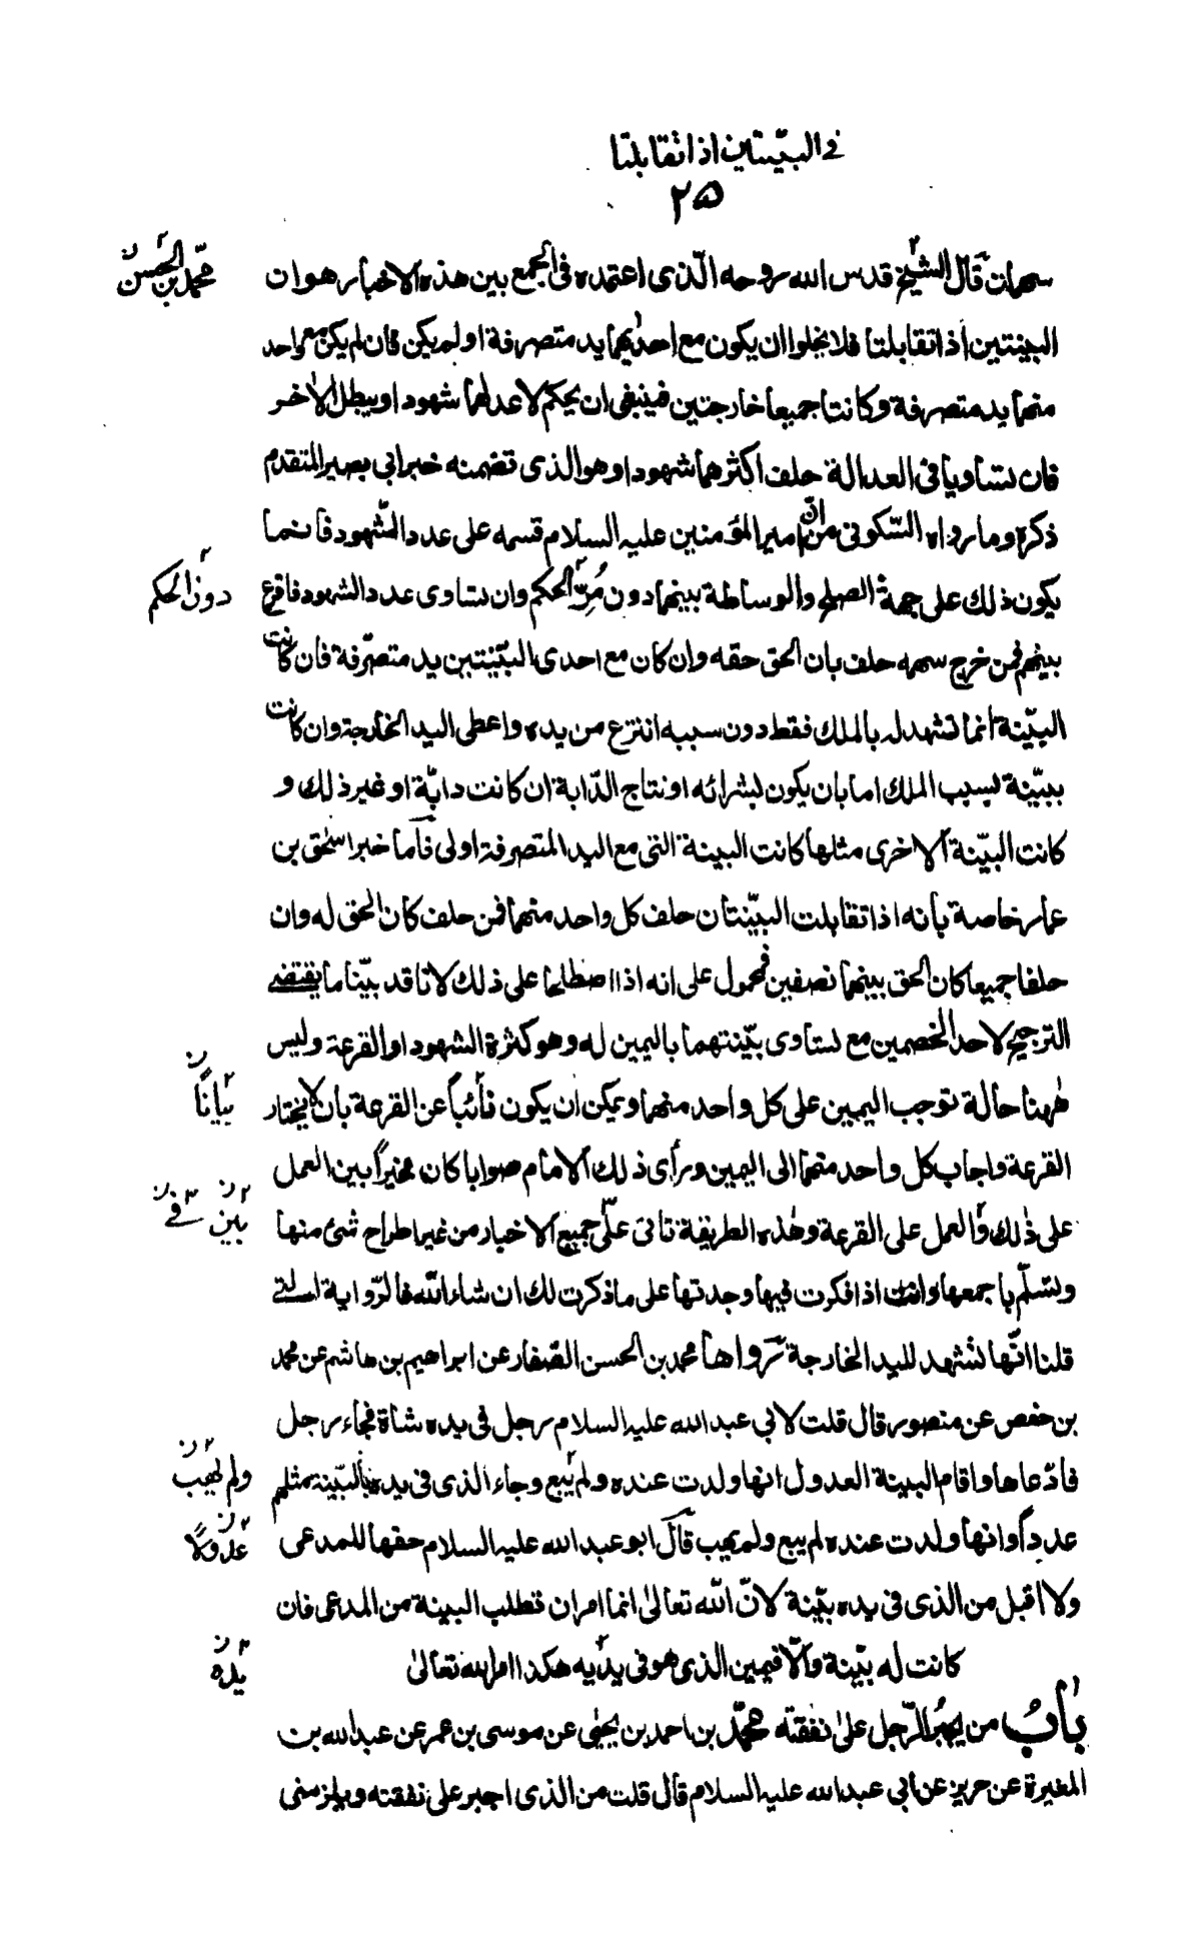 في البيّنتين اذا تقابلتا
٢٥
سهمات قال الشيخ قدس الله روحه الّذى اعتمده فى الجمع بين هذه الاخبار هو ان
محمّد بن الحسن
البينتين اذا تقابلتا فلا يخلوا ان يكون مع إحديهما يد متصرفة او لم يكن فان لم يكن مع واحد
منهما يد متصرفة وكانتا جميعا خارجتين فينبغى ان يحكم لاعدلهما شهودا ويبطل الاخر
فان تساويا فى العدالة حلف اكثرهما شهودا وهو الذى تضمنه خبر ابى بصير المتقدم
ذكره وما رواه السّكونى من انّ امير المؤمنين عليه السلام قسمه على عدد الشّهود فانما
يكون ذلك على جهة الصلح والوساطة بينهما دون مُرّ الحكم وان تساوى عدد الشهود فاقرع
دون الحكم
بينهم فمن خرج سهمه حلف بان الحق حقه وان كان مع احدى البيّنتين يد متصرّفة فان كانت
البيّنة انما تشهد له بالملك فقط دون سببه انتزع من يده واعطى اليد الخارجة وان كانت
ببيّنة بسبب الملك اما بان يكون بشرائه او نتاج الدّابة ان كانت دابّة او غير ذلك و
كانت البيّنة الاخرى مثلها كانت البينة التى مع اليد المتصرفة اولى فاما خبر اسحٰق بن
عمار خاصة بانه اذا تقابلت البيّنتان حلف كل واحد منهما فمن حلف كان الحق له وان
حلفا جميعا كان الحق بينهما نصفين فمحمول على انه اذا اصطلحا على ذلك لانا قد بيّنا ما يقتضى
الترجيح لاحد الخصمين مع تساوى بيّنتهما باليمين له وهو كثرة الشهود او القرعة وليس
هٰهنا حالة توجب اليمين على كل واحد منهما ويمكن ان يكون نائباً عن القرعة بان لا يختار
بيانًا
القرعة واجاب كل واحد منهما الى اليمين ورأى ذلك الامام صوابا كان مخيراً بين العمل
على ذٰلك والعمل على القرعة وهٰذه الطريقة تاتى على جميع الاخبار من غير اطراح شئ منها
بين في
وتسلّم باجمعها وانت اذا فكرت فيها وجدتها على ما ذكرت لك ان شاء الله فالرّواية التى
قلنا انّها تشهد لليد الخارجة رواها محمد بن الحسن الصّفار عن ابراهيم بن هاشم عن محمد
بن حفص عن منصور قال قلت لابى عبد الله عليه السلام رجل فى يده شاة فجاء رجل
فادّعاها واقام البينة العدول انها ولدت عنده ولم يبع وجاء الذى فى يده بالبيّنة مثلهم
ولم يهب
عدداً وانها ولدت عنده لم يبع ولم يهب قال ابو عبد الله عليه السلام حقها للمدعى
عدولًا
ولا اقبل من الذى فى يده بيّنة لانّ الله تعالىٰ انما امر ان تطلب البينة من المدعى فان
كانت له بيّنة والّا فيمين الذى هو فى يديه هكذا امر الله تعالىٰ
يده
بابُ من يجبر الرّجل علىٰ نفقته محمّد بن احمد بن يحيٰى عن موسى بن عمر عن عبد الله بن
المغيرة عن حريز عن ابى عبد الله عليه السلام قال قلت من الذى اجبر على نفقته ويلزمنى